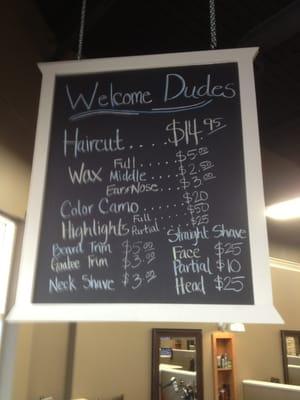 Welcome Dudes
Haircut.....$14.95
Wax Full......$5.00
Middle.....$2.50
Ear & Nose...$3.00
Color Camo.....$20
Highlights Full......$50
Partial....$25
Beard Trim $5.00
Goatee Trim $3.00
Neck Shave $3.00
Straight Shave
Face $25
Partial $10
Head $25